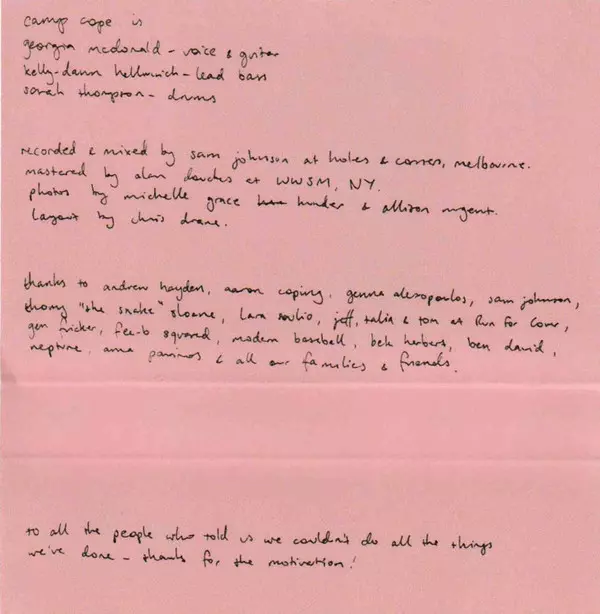 camp cope is
georgia mcdonald - voice & guitar
kelly-dawn hellmrich - lead bass
sarah thompson - drums
recorded & mixed by sam johnson at holes & corners, melbourne.
mastered by alan douches at WWSM, NY.
photos by michelle grace hunder & allison nugent.
layout by chris drane.
thanks to andrew hayden, aaron coping, gemma alexopoulos, sam johnson,
thomy "the snake" sloane, lara soulio, jeff, talia & tom at Run For Cover,
gen fricker, fee-b squared, modern baseball, bek herbers, ben david,
neptune, anna & all our families & friends.
to all the people who told us we couldn't do all the things
we've done - thanks for the motivation!